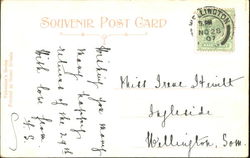 SOUVENIR POST CARD
WELLINGTON
NO 28
07
Wishing you many
many happy
returns of the 29th
With love from
Miss Irene Hewitt
Ingleside
Wellington, Som